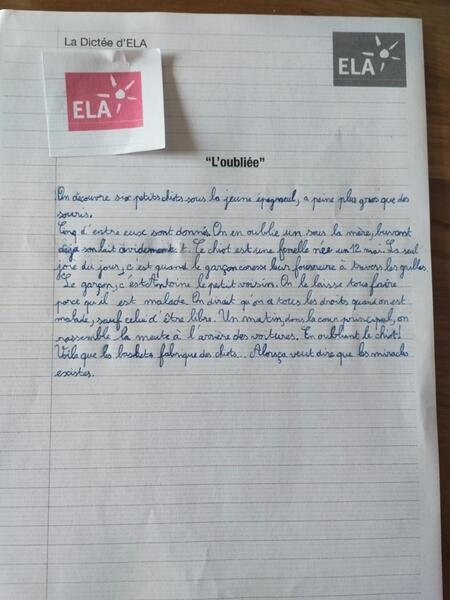 La Dictée d'ELA
ELA
ELA
"L'oubliée"
On découvre six petits chiots sous la jeune épagneul, a peine plus gros que des
souris.
Cinq d'entre eux sont donnés. On en oublie un sous la mère, buvant
déjà son lait avidement. Ce chiot est une femelle née un 12 mai. La seul
joie du jour, c'est quand le garçon caresse leur fourrure à travers les grilles.
Le garçon, c'est Antoine le petit voisin. On le laisse tous faire
parce qu'il est malade. On dirait qu'on a tous les droits quand on est
malade, sauf celui d'être libre. Un matin, dans la cour principal, on
rassemble la meute à l'arrière des voitures. En oubliant le chiot!
Voila que les baskets fabrique des chiots... Alors ça veut dire que les miracles
existes.